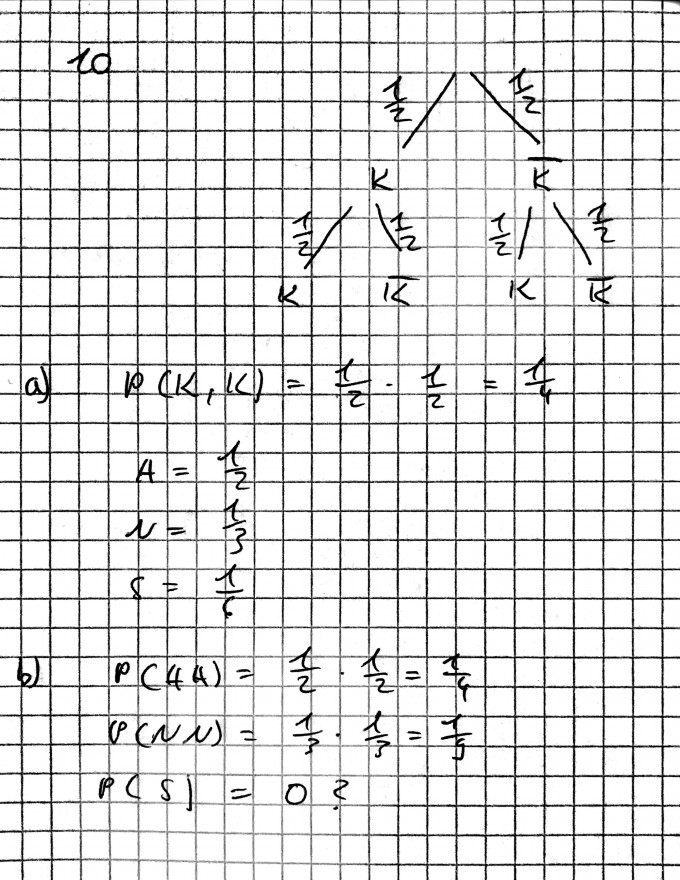 10
1/2 1/2
K K̅
1/2 1/2 1/2 1/2
K K̅ K K̅
a) P(K, K) = 1/2 · 1/2 = 1/4
A = 1/2
N = 1/3
S = 1/6
b) P(AA) = 1/2 · 1/2 = 1/4
P(NN) = 1/3 · 1/3 = 1/9
P(S) = 0 ?